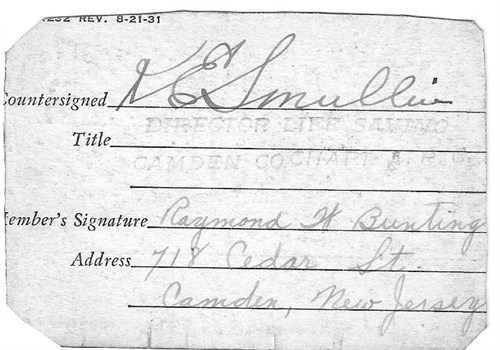 1232 REV. 8-21-31
Countersigned K E Smullin
DIRECTOR LIFE SAVING
Title
CAMDEN CO CHAPT A. R. C.
Member's Signature Raymond W Bunting
Address 718 Cedar St.
Camden, New Jersey